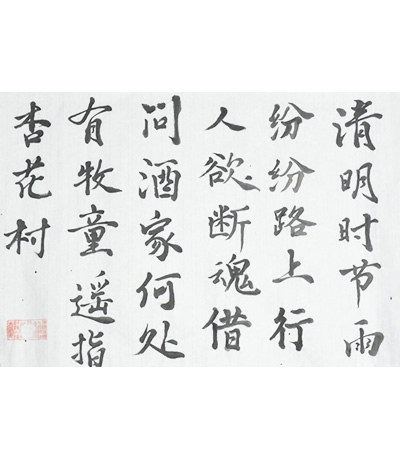 清明时节雨
纷纷路上行
人欲断魂借
问酒家何处
有牧童遥指
杏花村